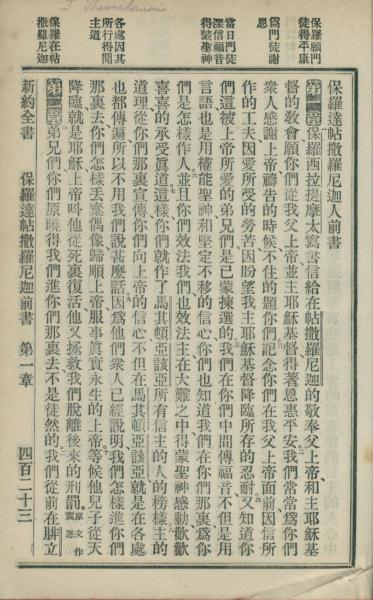 I Thessalonians
保羅願門
徒得平康
為門徒謝
恩
當日門徒
深信福音
得蒙聖神
各處因其
所行得聞
主道
保羅在帖
撒羅尼迦
保羅達帖撒羅尼迦人前書
第一章保羅西拉提摩太寫書信給在帖撒羅尼迦的敬奉父上帝和主耶穌基
督的教會願你們從我父上帝並主耶穌基督得著恩惠平安我們常常為你們
眾人感謝上帝禱告的時候不住的題你們記念你們在我父上帝面前因信所
作的工夫因愛所受的勞苦因盼望我主耶穌基督降臨所存的忍耐又知道你
們這被上帝所愛的弟兄們是已蒙揀選的我們在你們中間傳福音不但是用
言語也是用權能聖神和堅定不移的信心你們也知道我們在你們那裏為你
們是怎樣作人並且你們效法我們也效法主在大難之中得蒙聖神感動歡歡
喜喜的承受眞道這樣你們就作了馬其頓亞該亞所有信主的人的榜樣主的
道理從你們那裏宣傳你們向上帝的信心不但在馬其頓亞該亞就是在各處
也都傳遍所以不用我們說甚麼話因為他們眾人已經說明我們怎樣進你們
那裏去你們怎樣丟棄偶像歸順上帝服事眞實永生的上帝等候他兒子從天
降臨就是耶穌上帝呌他從死裏復活他又拯救我們脫離後來的刑罰原文作震怒
第二章弟兄們你們原曉得我們進你們那裏去不是徒然的我們從前在腓立
新約全書　保羅達帖撒羅尼迦前書　第一章　四百二十三